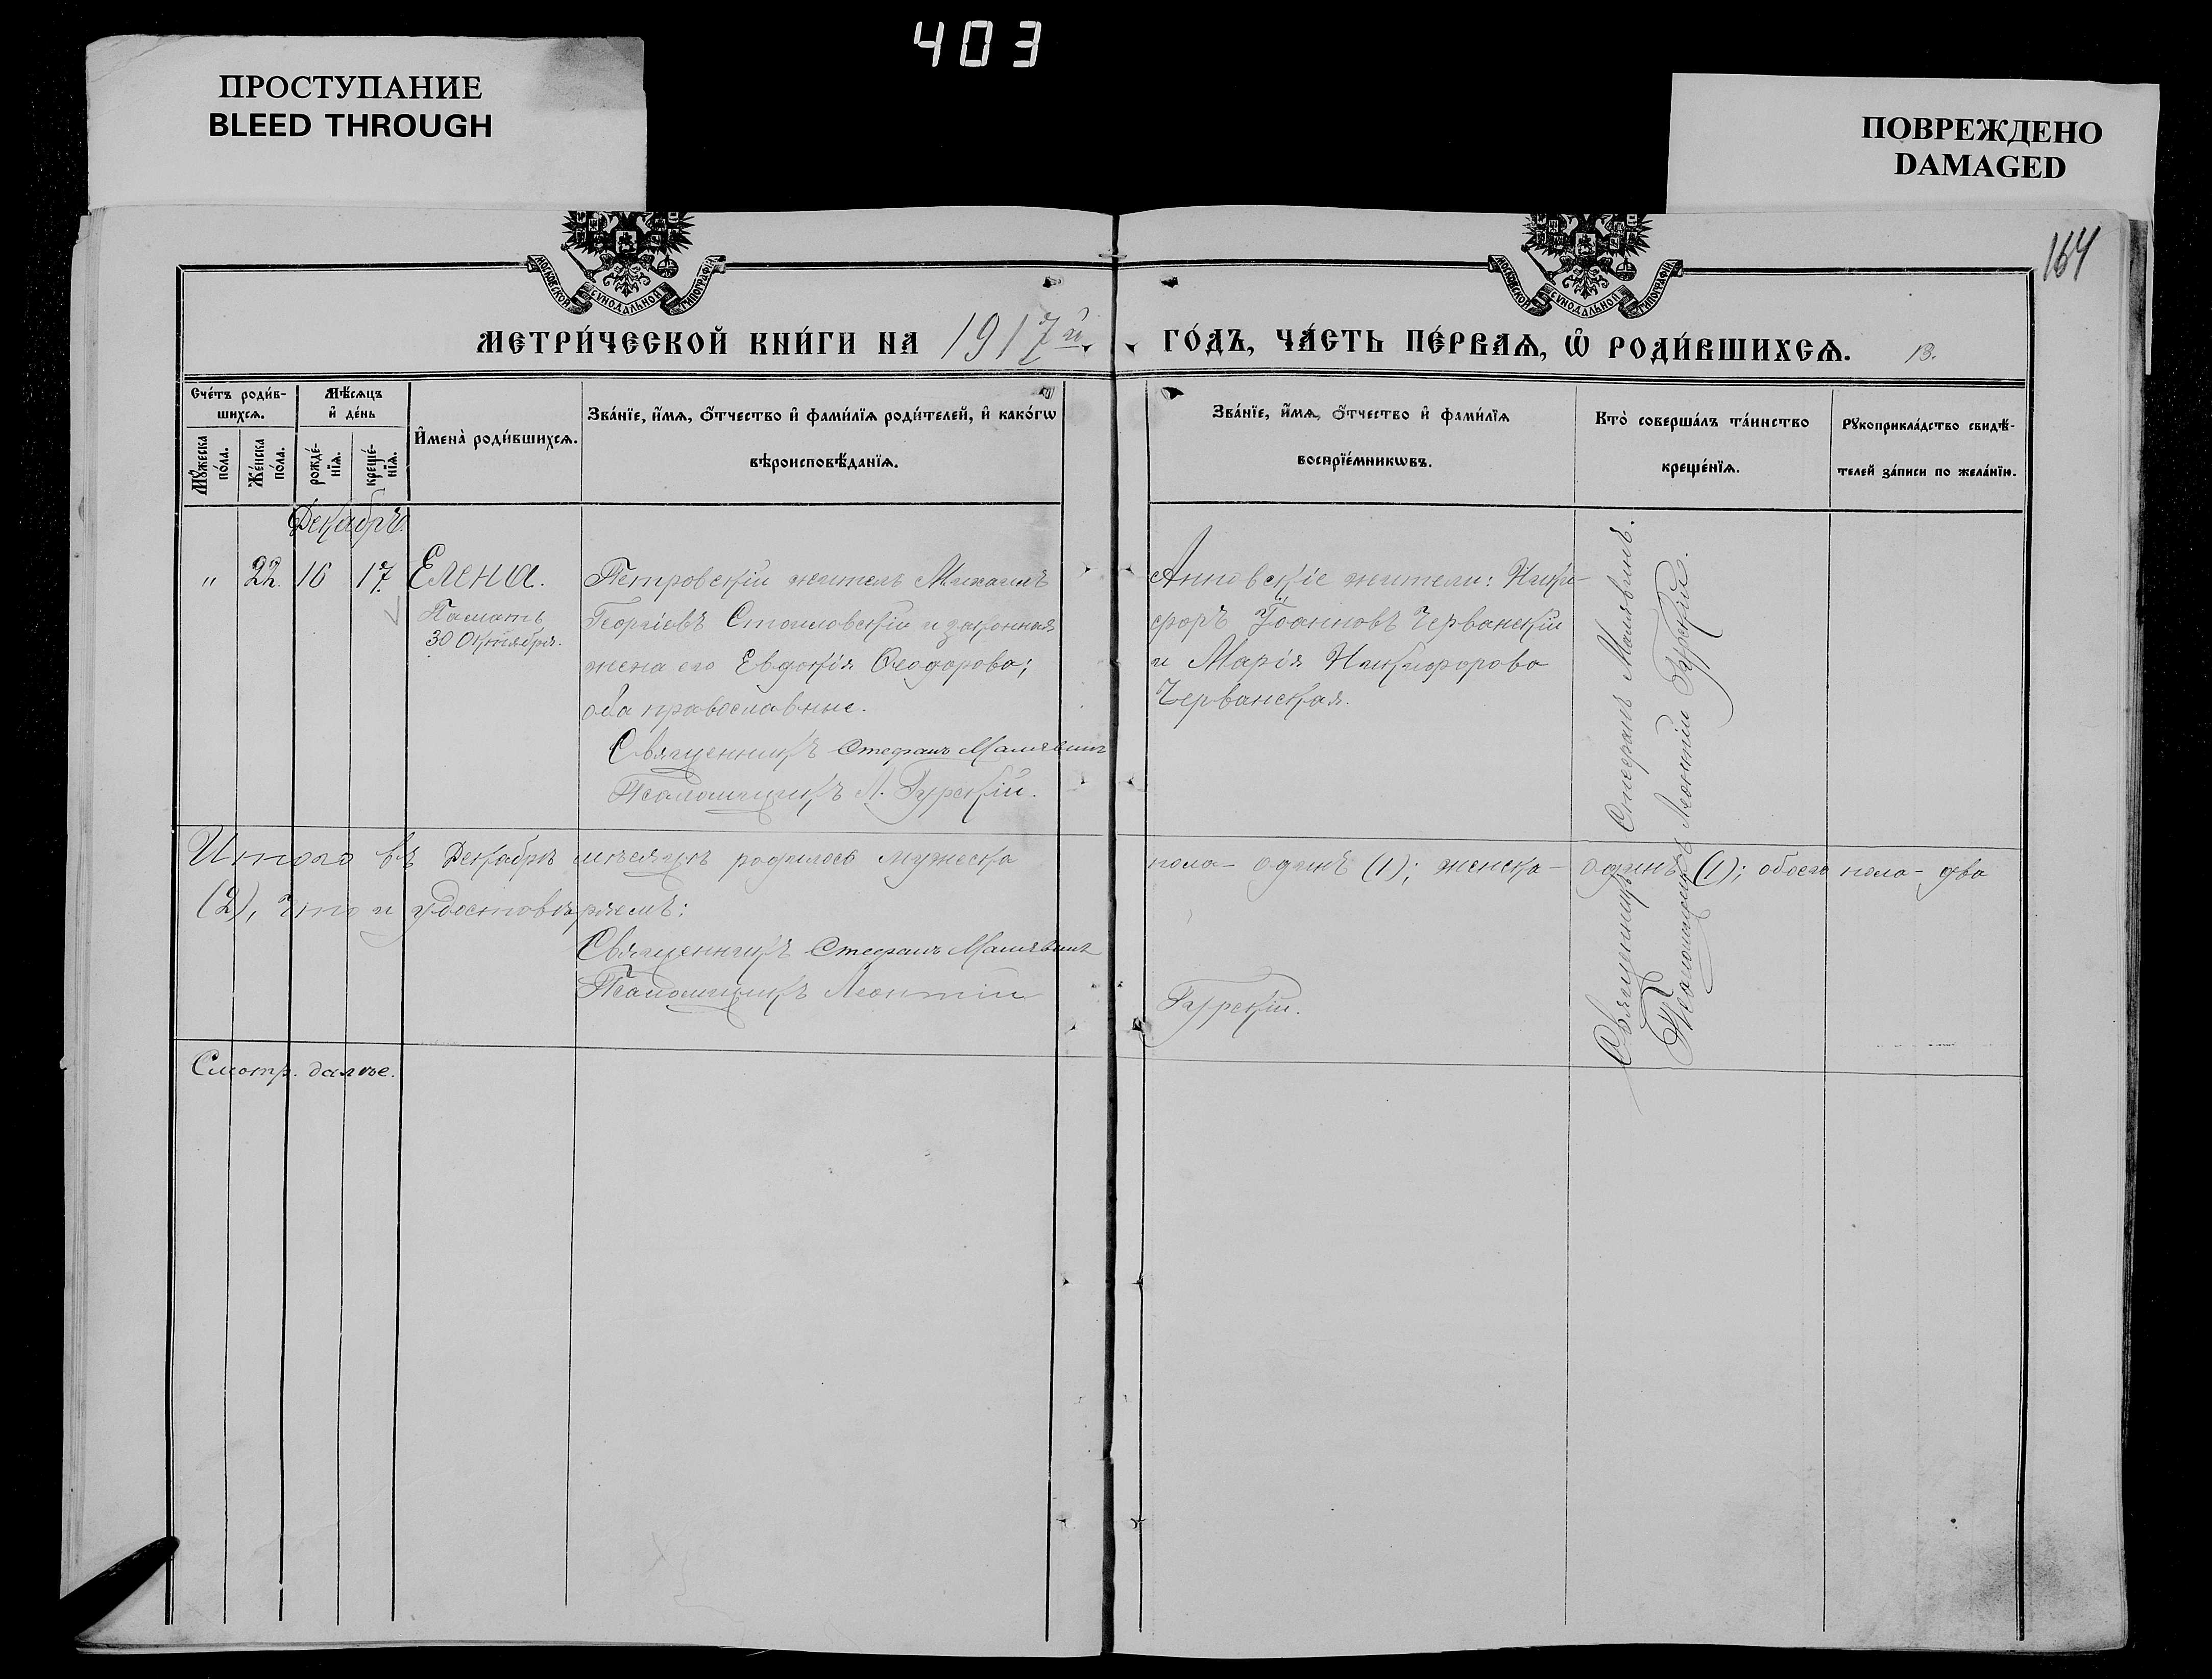 403
ПРОСТУПАНИЕ
BLEED THROUGH
ПОВРЕЖДЕНО
DAMAGED
164
МОСКОВСКОЙ СѴНОДАЛЬНОЙ ТИПОГРАФІИ
МОСКОВСКОЙ СѴНОДАЛЬНОЙ ТИПОГРАФІИ
МЕТРИ́ЧЕСКОЙ КНИ́ГИ НА 1917й.
ГО́ДЪ, ЧА́СТЬ ПЕ́РВАѦ, Ѡ҆ РОДИ́ВШИХСѦ. 13.
Сче́тъ роди́в-
шихсѧ.
Мꙋ́жеска по́ла.
Же́нска по́ла.
Мѣ́сѧцъ и҆ де́нь
рожде́-нїѧ.
креще́-нїѧ.
И҆мена̀ роди́вшихсѧ.
Зва́нїе, и҆́мѧ, ѻ҆́тчество и҆ фами́лїѧ роди́телей, и҆ како́гѡ
вѣроисповѣ́данїѧ.
Зва́нїе, и҆́мѧ, ѻ҆́тчество и҆ фами́лїѧ
воспрїе́мникѡвъ.
Кто̀ соверша́лъ та́инство
креще́нїѧ.
Рꙋкоприкла́дство свидѣ́-
телей за́писи по жела́нїю.
Декабрь.
" 22. 16 17. Елена.
Память
30 Октября.
Петровскій житель Михаилъ
Георгіевъ Стоиловскій и законная
жена его Евдокія Ѳеодорова;
оба православные.
Священникъ Стефанъ Малявинъ
Псаломщикъ Л. Гурскій.
Анновскіе жители: Ники-
форъ Іоанновъ Черванскій
и Марія Никифорова
Черванская.
Священникъ Стефанъ Малявинъ.
Псаломщикъ Леонтій Гурскій.
Итого въ Декабрѣ мѣсяцѣ родилось мужеска пола - одинъ (1); женска - одинъ (1); обоего пола - два
(2), что и удостовѣряемъ:
Священникъ Стефанъ Малявинъ
Псаломщикъ Леонтій Гурскій.
Смотр. далѣе.